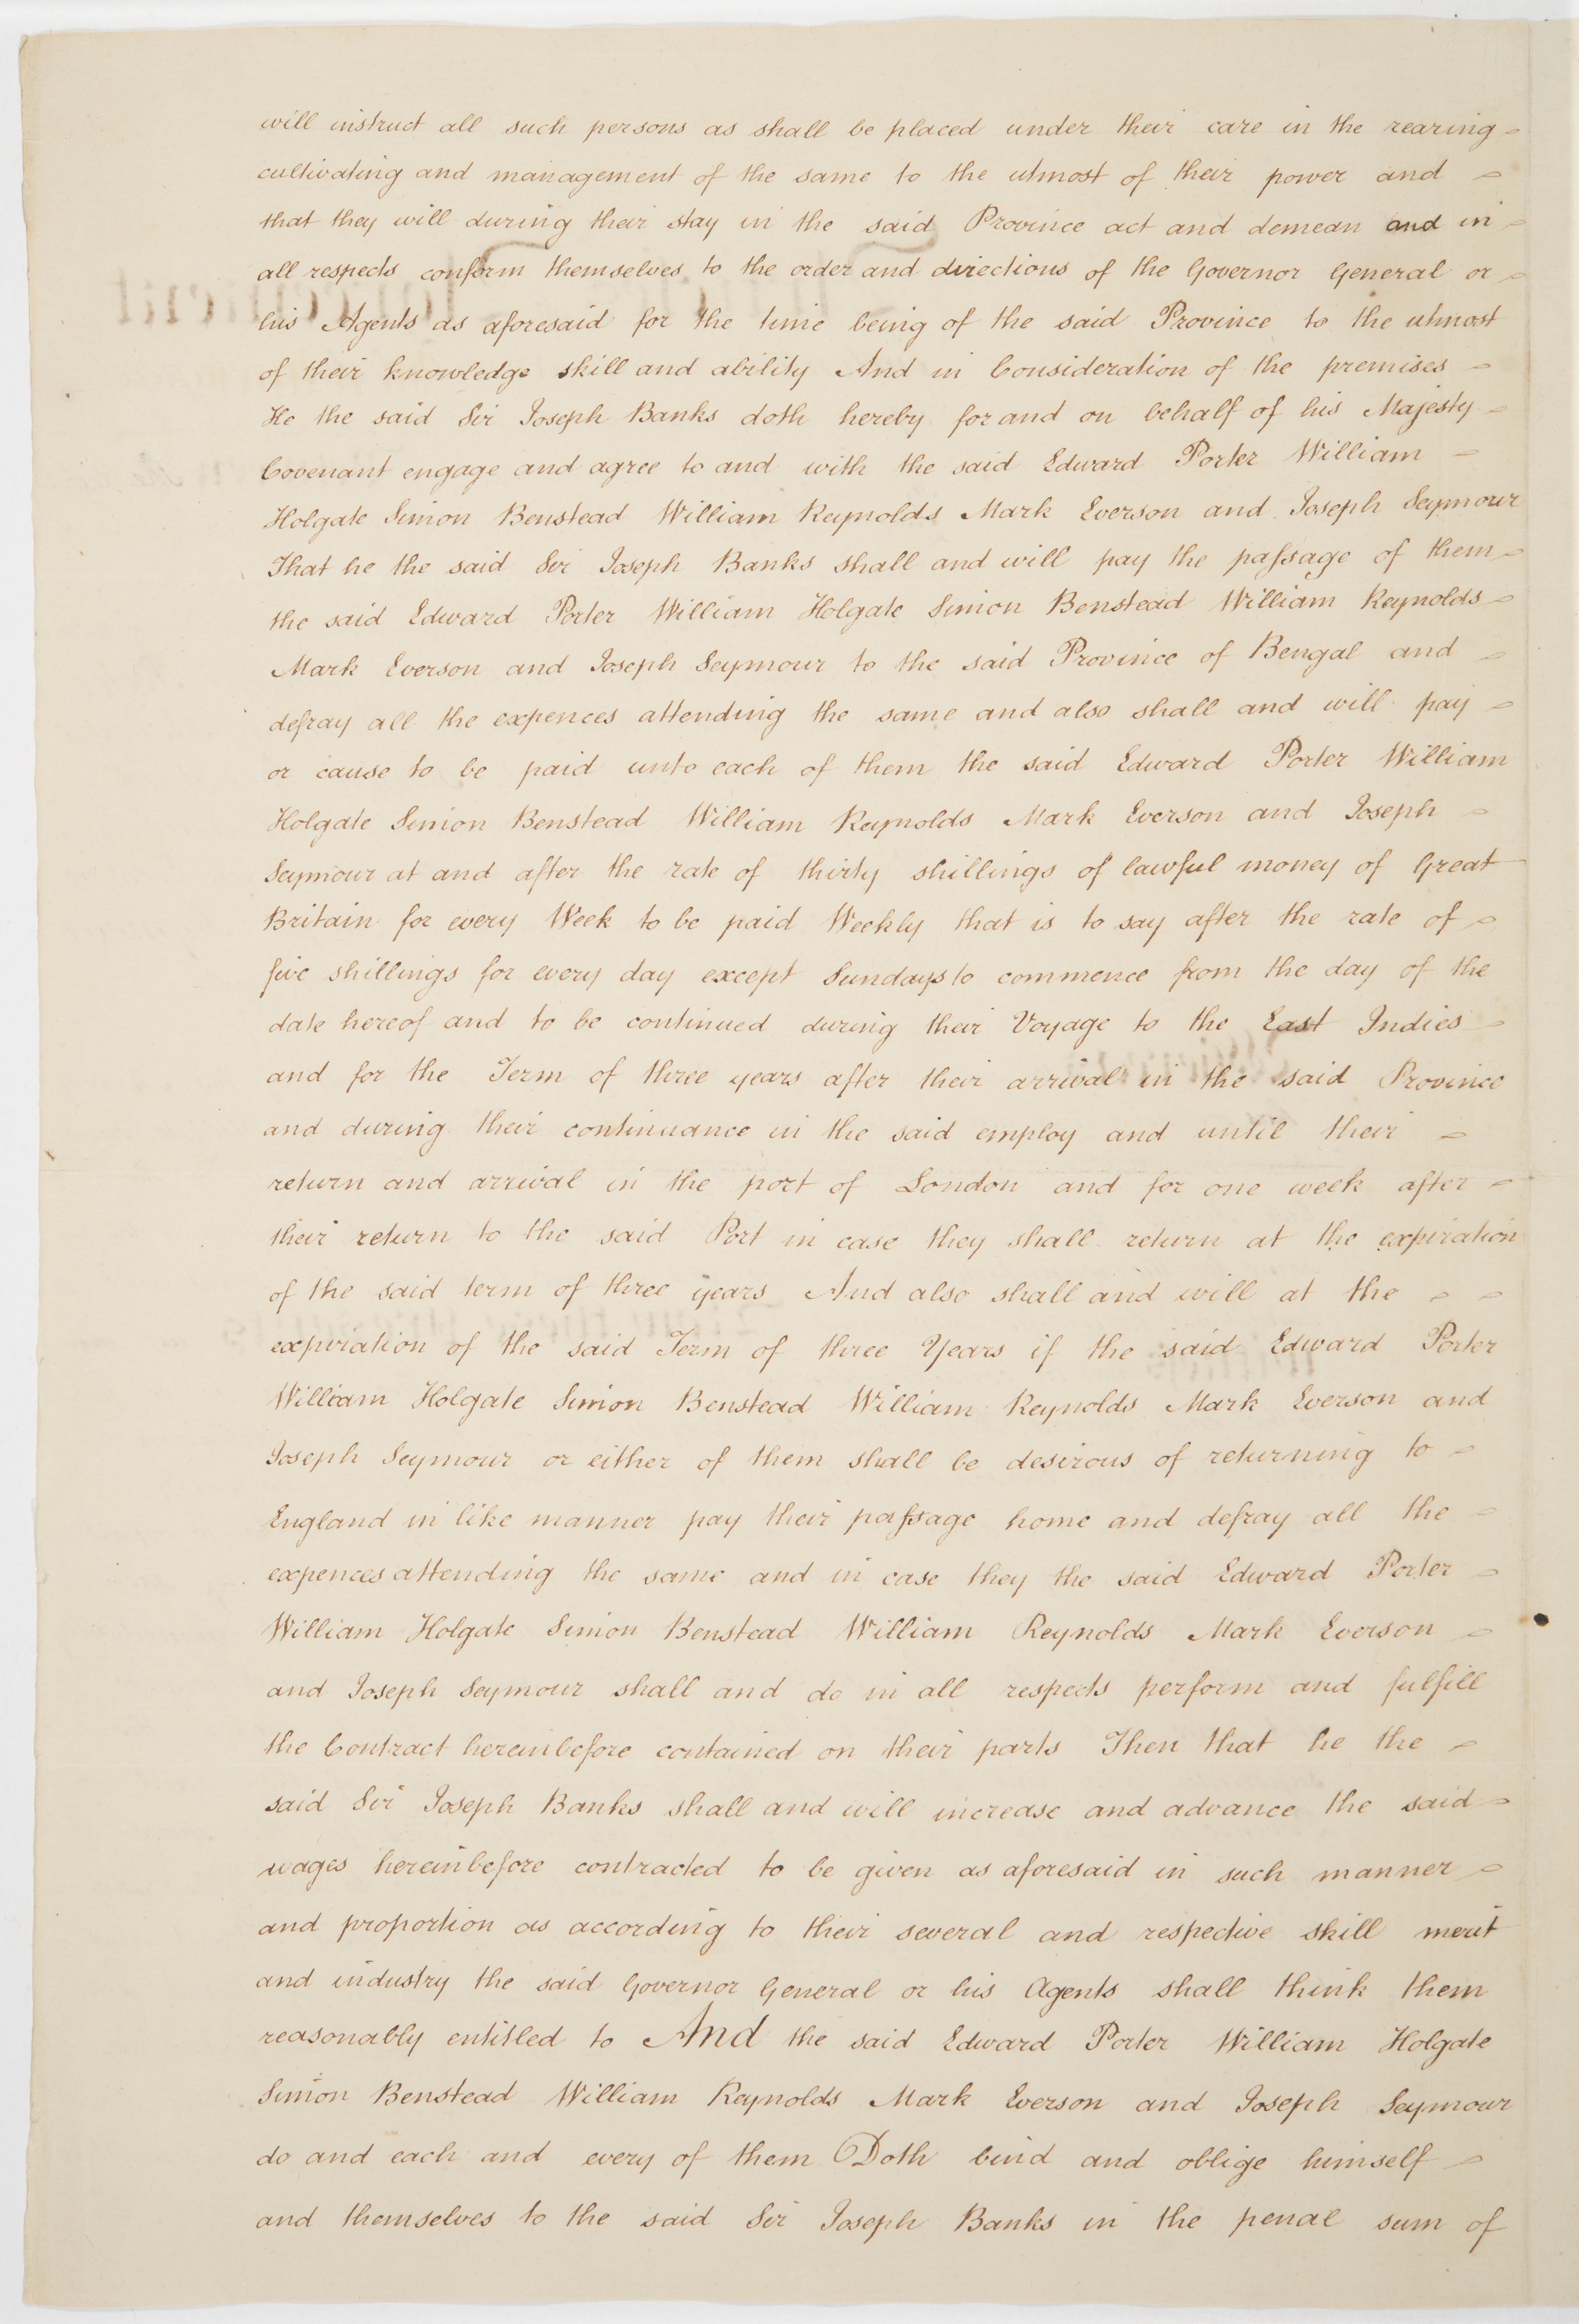 will instruct all such persons as shall be placed under their care in the rearing
cultivating and management of the same to the utmost of their power and
that they will during their stay in the said Province act and demean and in
all respects conform themselves to the order and directions of the Governor General or
his Agents as aforesaid for the time being of the said Province to the utmost
of their knowledge skill and ability And in Consideration of the premises
He the said Sir Joseph Banks doth hereby for and on behalf of his Majesty
Covenant engage and agree to and with the said Edward Porter William
Holgate Simon Benstead William Reynolds Mark Everson and Joseph Seymour
That he the said Sir Joseph Banks shall and will pay the passage of them
the said Edward Porter William Holgate Simon Benstead William Reynolds
Mark Everson and Joseph Seymour to the said Province of Bengal and
defray all the expences attending the same and also shall and will pay
or cause to be paid unto each of them the said Edward Porter William
Holgate Simon Benstead William Reynolds Mark Everson and Joseph
Seymour at and after the rate of thirty shillings of lawful money of Great
Britain for every Week to be paid Weekly that is to say after the rate of
five shillings for every day except Sundays to commence from the day of the
date hereof and to be continued during their Voyage to the East Indies
and for the Term of three years after their arrival in the said Province
and during their continuance in the said employ and until their
return and arrival in the port of London and for one week after
their return to the said Port in case they shall return at the expiration
of the said term of three years And also shall and will at the
expiration of the said Term of three Years if the said Edward Porter
William Holgate Simon Benstead William Reynolds Mark Everson and
Joseph Seymour or either of them shall be desirous of returning to
England in like manner pay their passage home and defray all the
expences attending the same and in case they the said Edward Porter
William Holgate Simon Benstead William Reynolds Mark Everson
and Joseph Seymour shall and do in all respects perform and fulfill
the Contract hereinbefore contained on their parts Then that he the
said Sir Joseph Banks shall and will increase and advance the said
wages hereinbefore contracted to be given as aforesaid in such manner
and proportion as according to their several and respective skill merit
and industry the said Governor General or his Agents shall think them
reasonably entitled to And the said Edward Porter William Holgate
Simon Benstead William Reynolds Mark Everson and Joseph Seymour
do and each and every of them Doth bind and oblige himself
and themselves to the said Sir Joseph Banks in the penal sum of